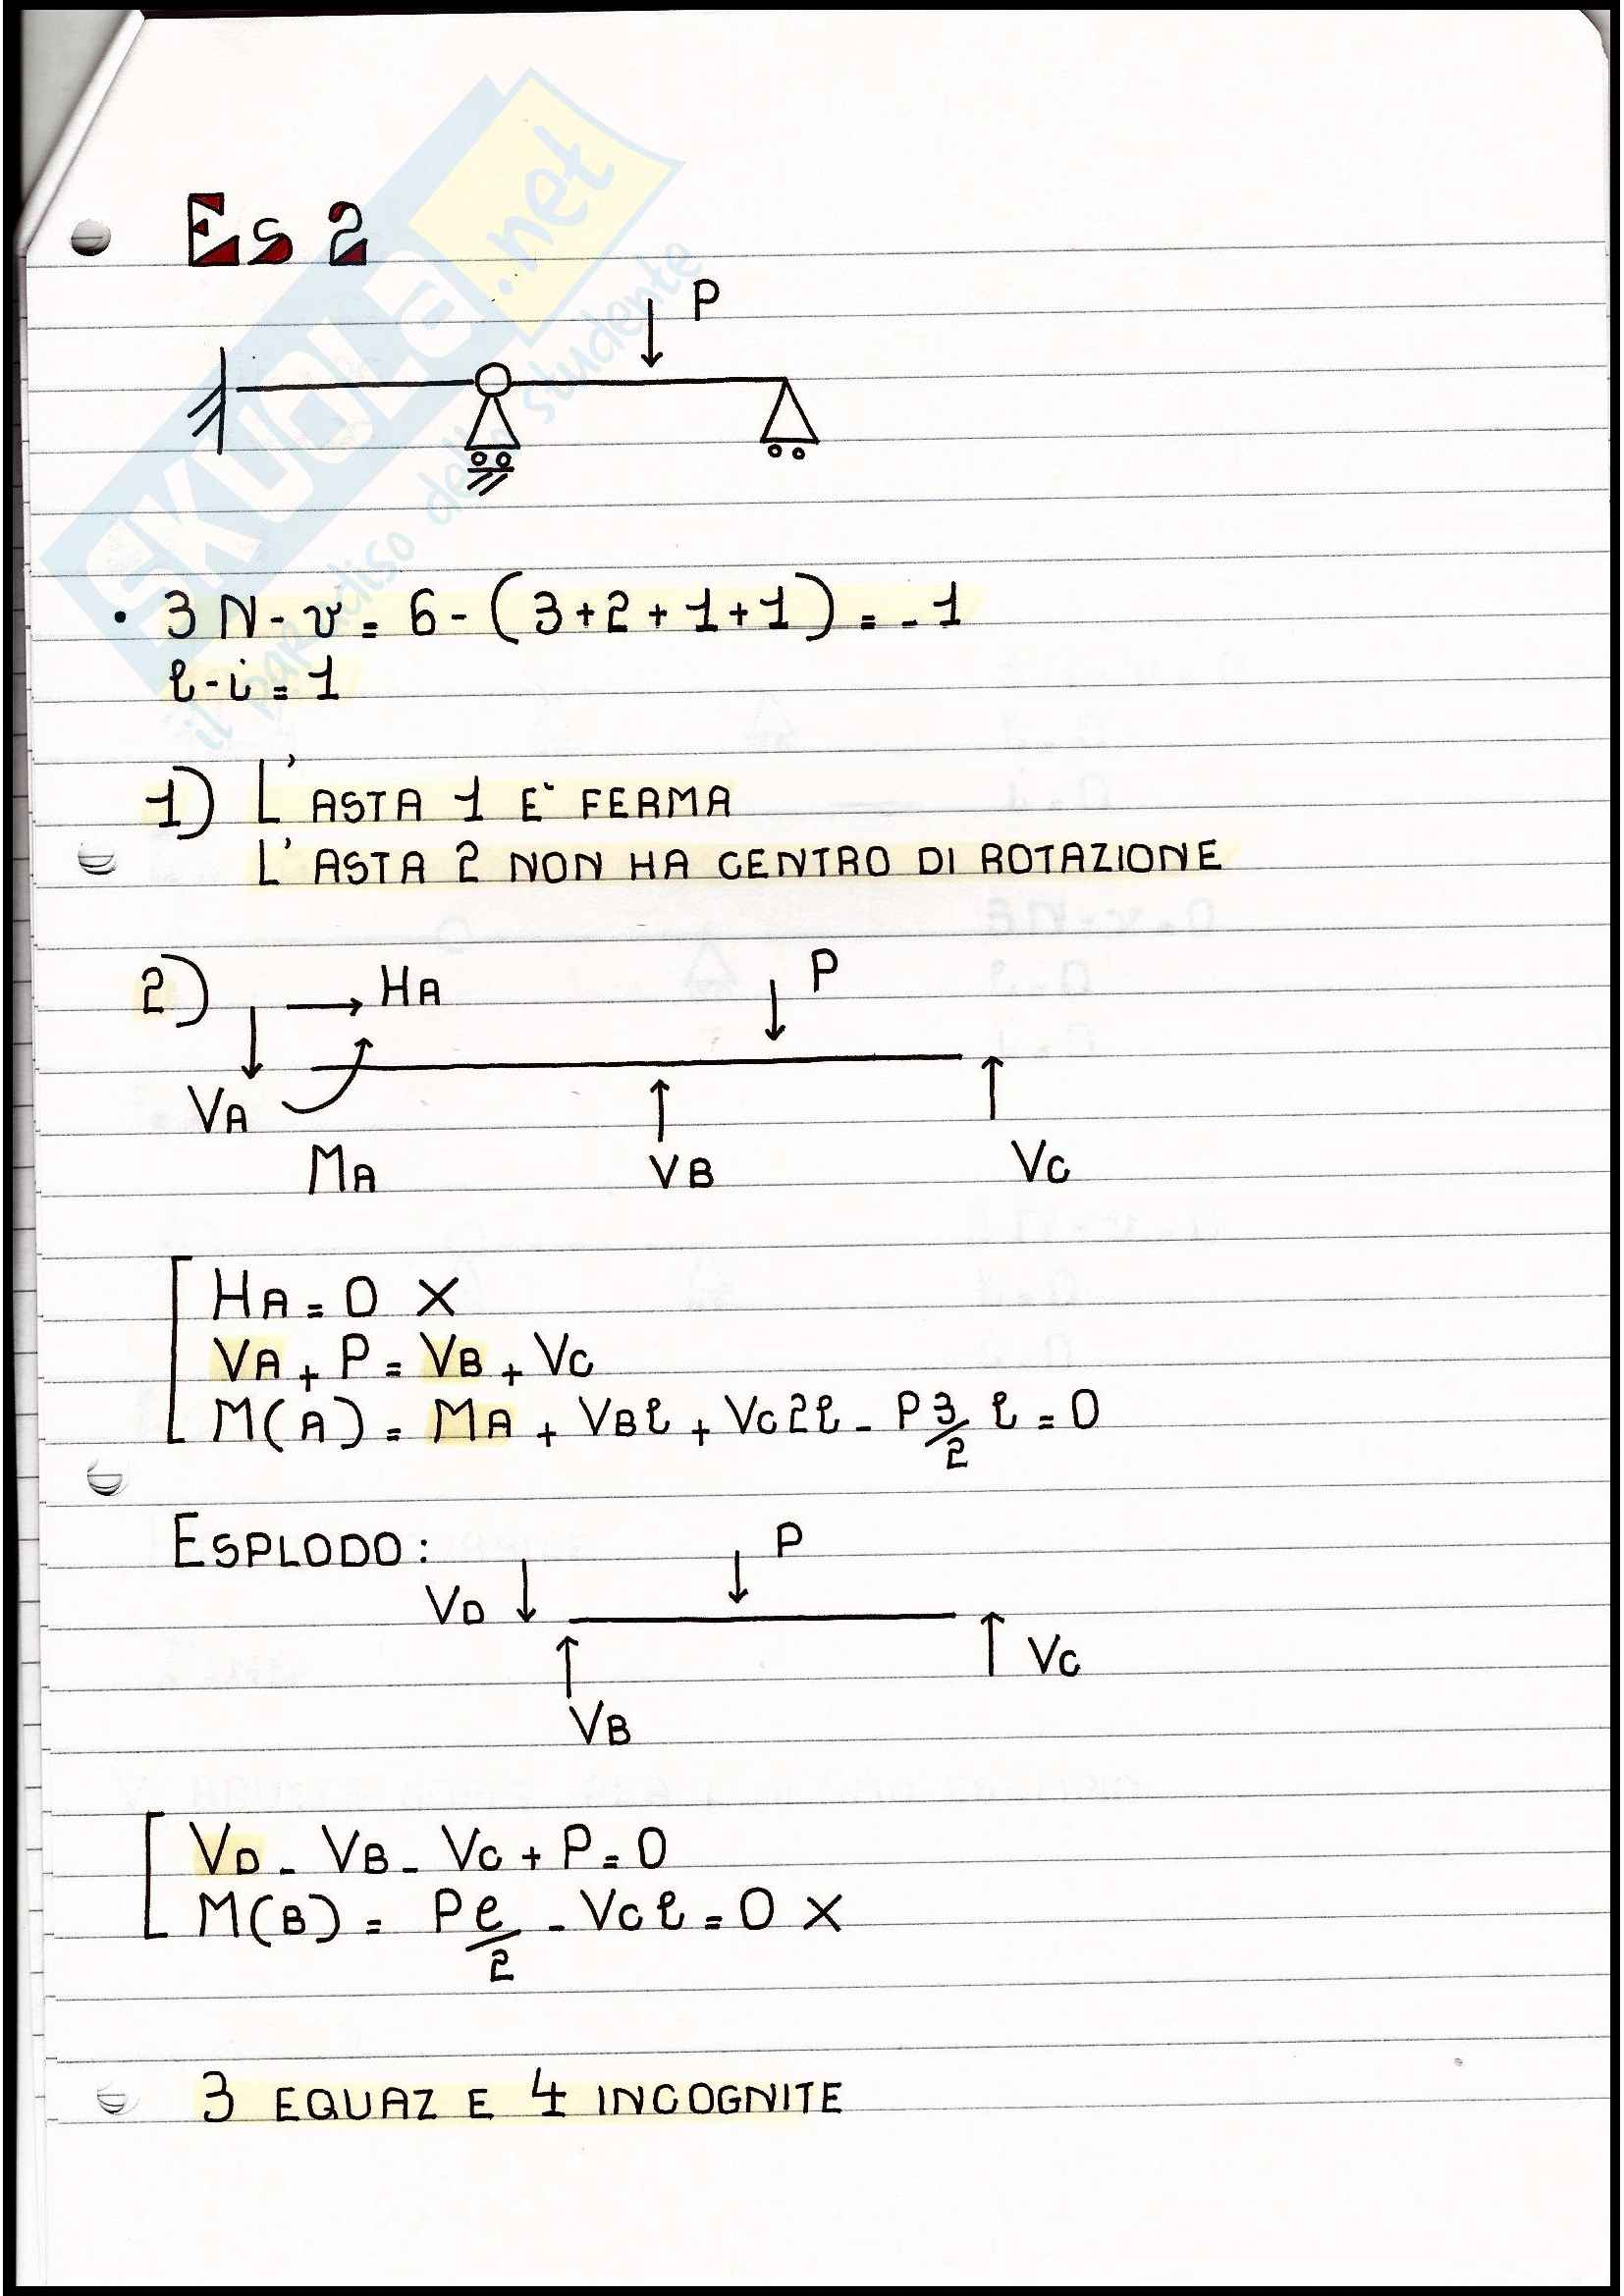 SKUOLA.net
il paradiso dello studente
Es 2
P
• 3N-v = 6-(3+2+1+1) = -1
l-i = 1
1) L'ASTA 1 E' FERMA
L'ASTA 2 NON HA CENTRO DI ROTAZIONE
2) HA P
VA
MA VB VC
HA = 0 X
VA + P = VB + VC
M(A) = MA + VBl + VC2l - P 3/2 l = 0
ESPLODO: P
VD
VC
VB
VD - VB - VC + P = 0
M(B) = P l/2 - VCl = 0 X
3 EQUAZ E 4 INCOGNITE